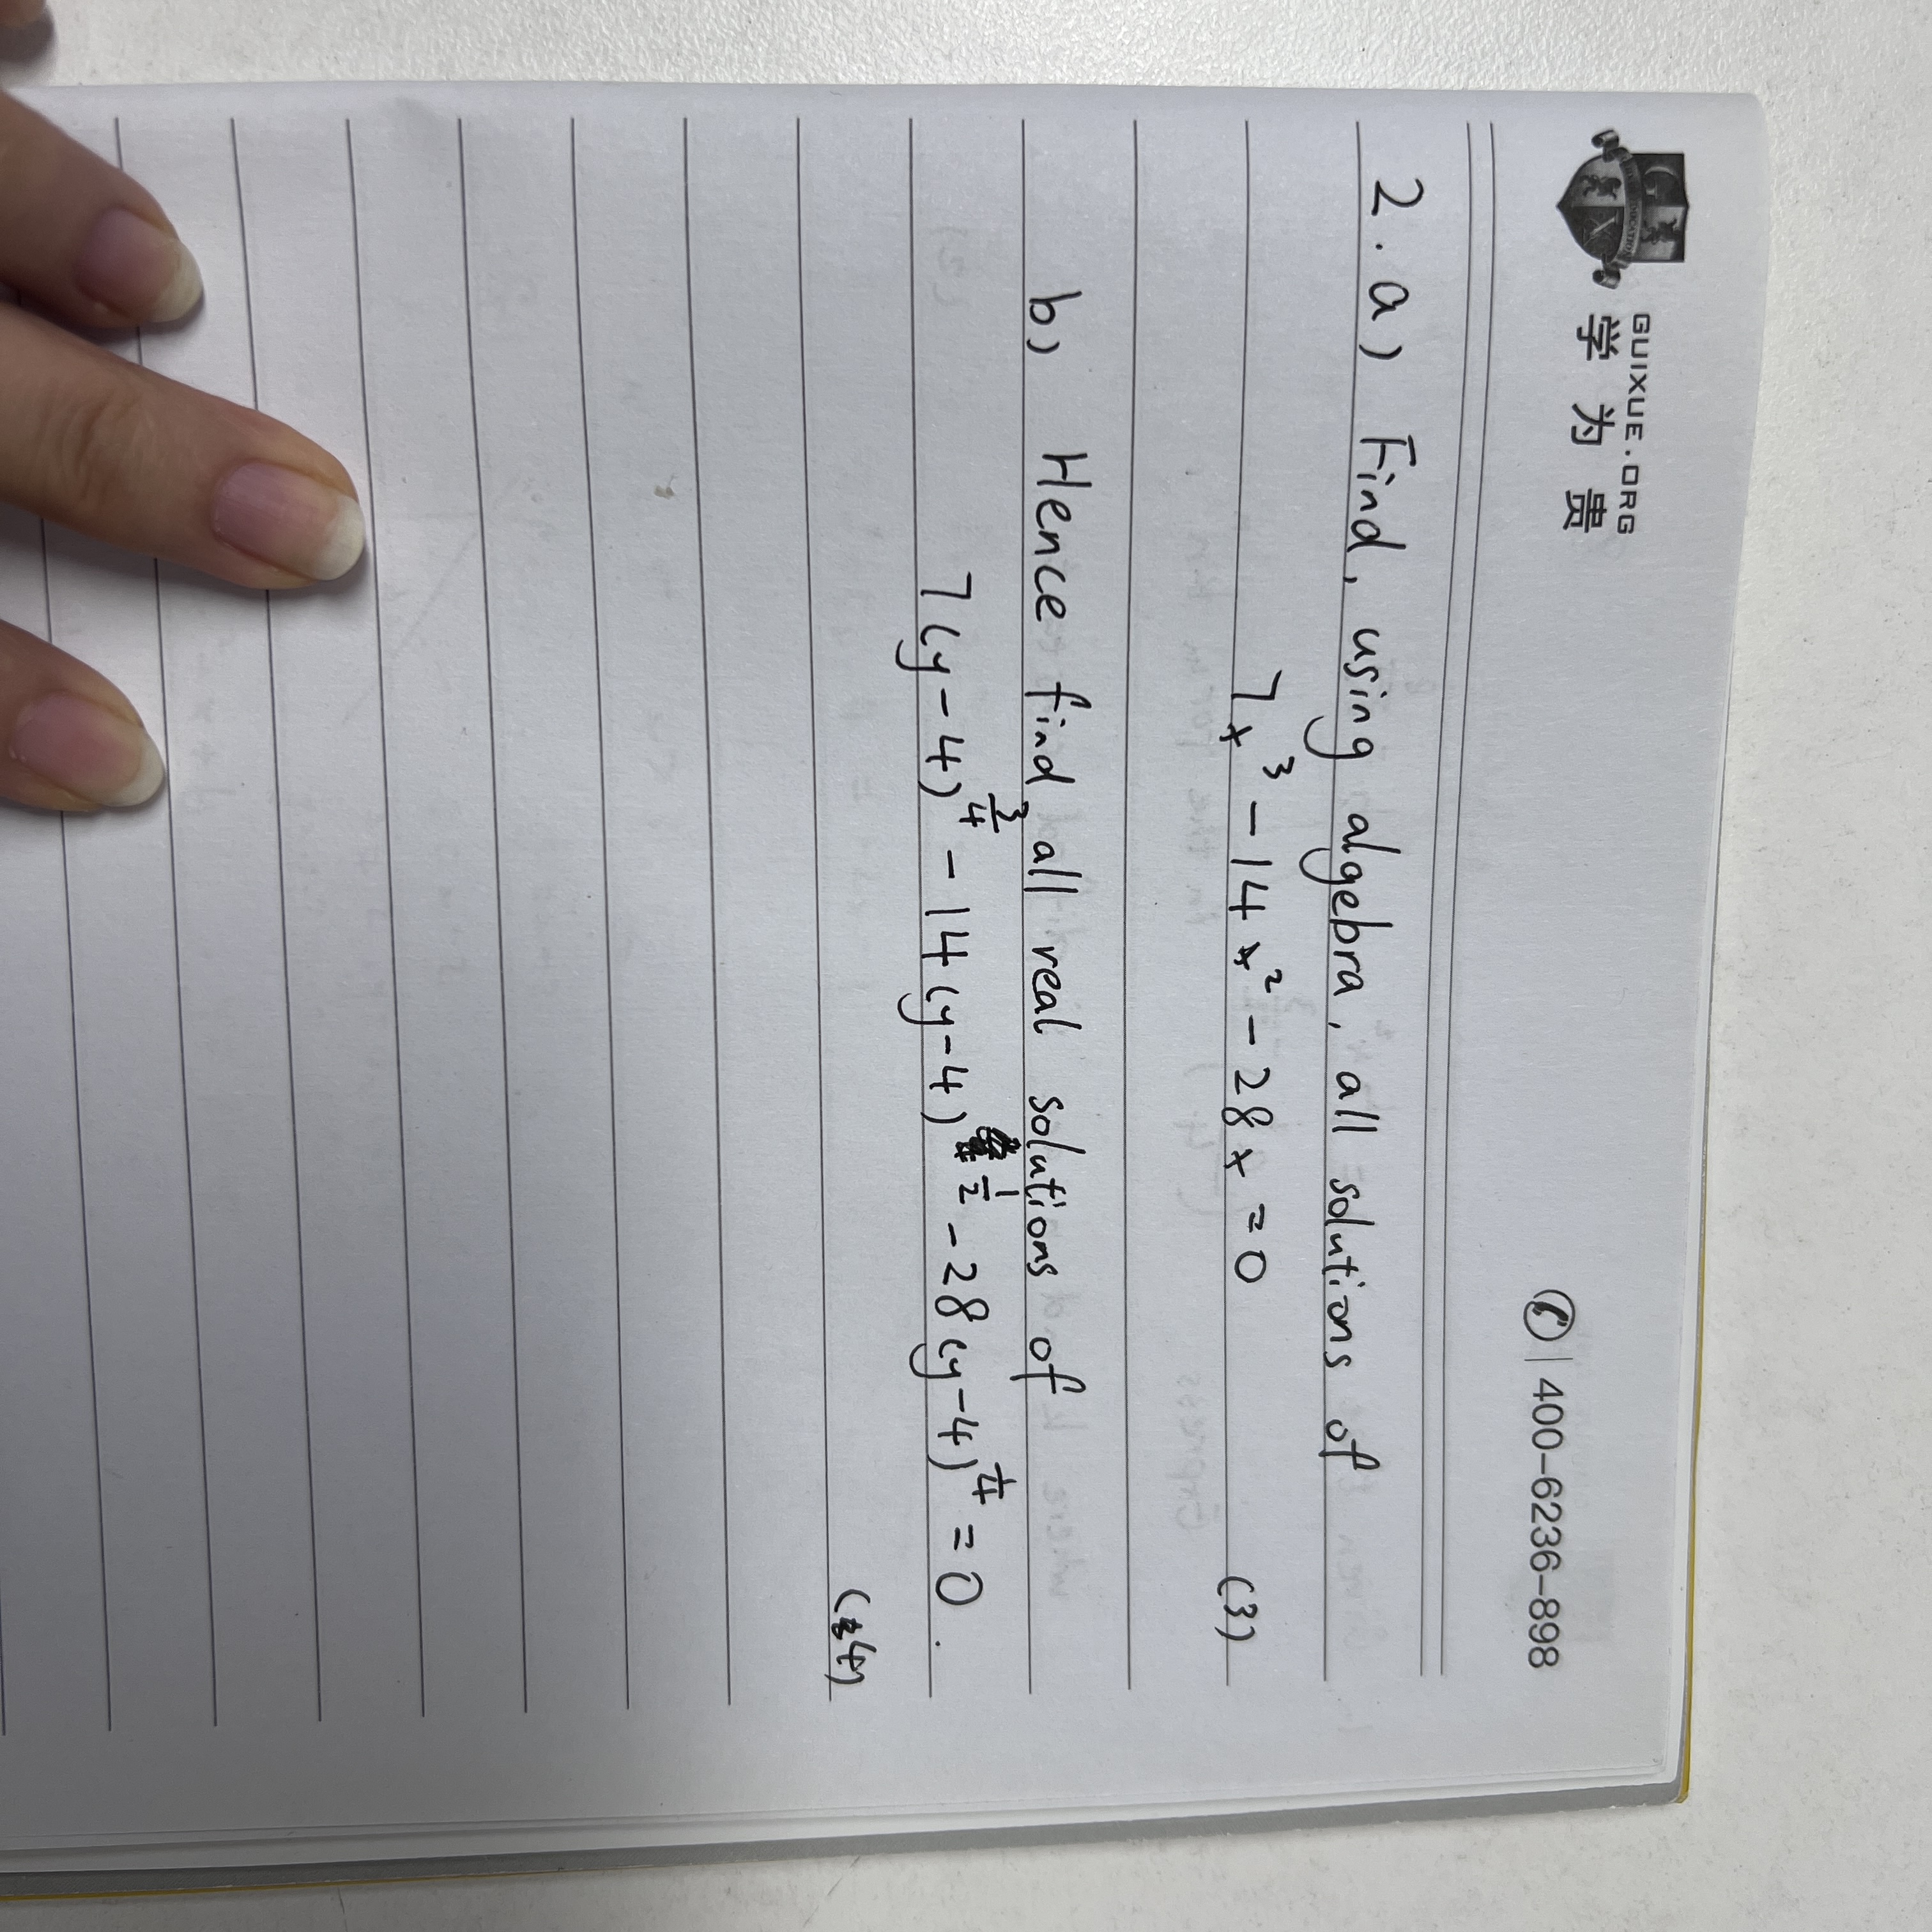 GUIXUE.ORG
学为贵
400-6236-898
2. a) Find, using algebra, all solutions of
7x³ - 14x² - 28x = 0
(3)
b) Hence find all real solutions of
7(y-4)^(3/4) - 14(y-4)^(1/2) - 28(y-4)^(1/4) = 0.
(4)